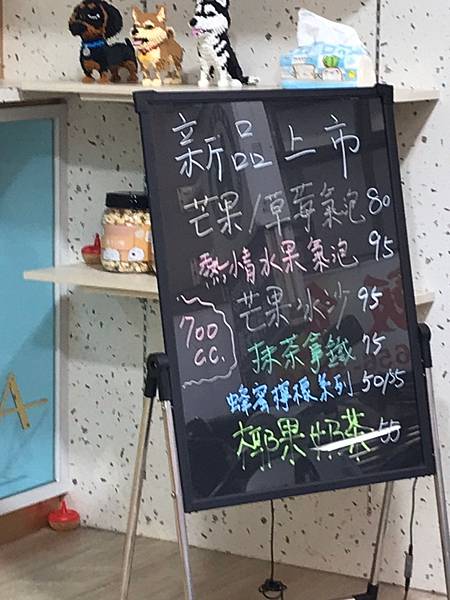 新品上市
芒果/草莓氣泡 80
熱情水果氣泡 95
芒果冰沙 95
700 c.c.
抹茶拿鐵 75
蜂蜜檸檬系列 50/55
椰果奶茶 55